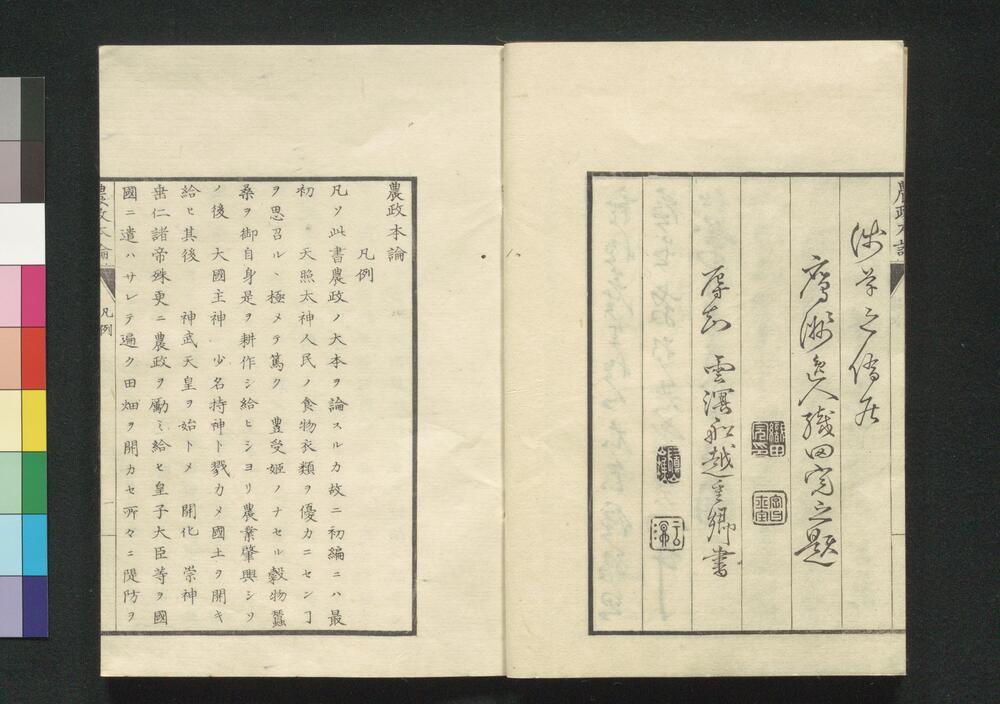 農政本論
鷹洲逸人織田完之題
雲溟船越重卿書
農政本論
凡例
凡ソ此書農政ノ大本ヲ論スルカ故ニ初編ニハ最
初 天照太神人民ノ食物衣類ヲ優カニセンヿ
ヲ思召ル、極メテ篤ク 豊受姫ノナセル穀物蠶
桑ヲ御自身是ヲ耕作シ給ヒシヨリ農業肇興シソ
ノ後 大國主神 少名持神ト戮カメ國土ヲ開キ
給ヒ其後 神武天皇ヲ始トメ 開化 崇神
垂仁諸帝殊更ニ農政ヲ勵ミ給ヒ皇子大臣等ヲ國
國ニ遣ハサレテ遍ク田畑ヲ開カセ所々ニ隄防ヲ
農政本論
凡例